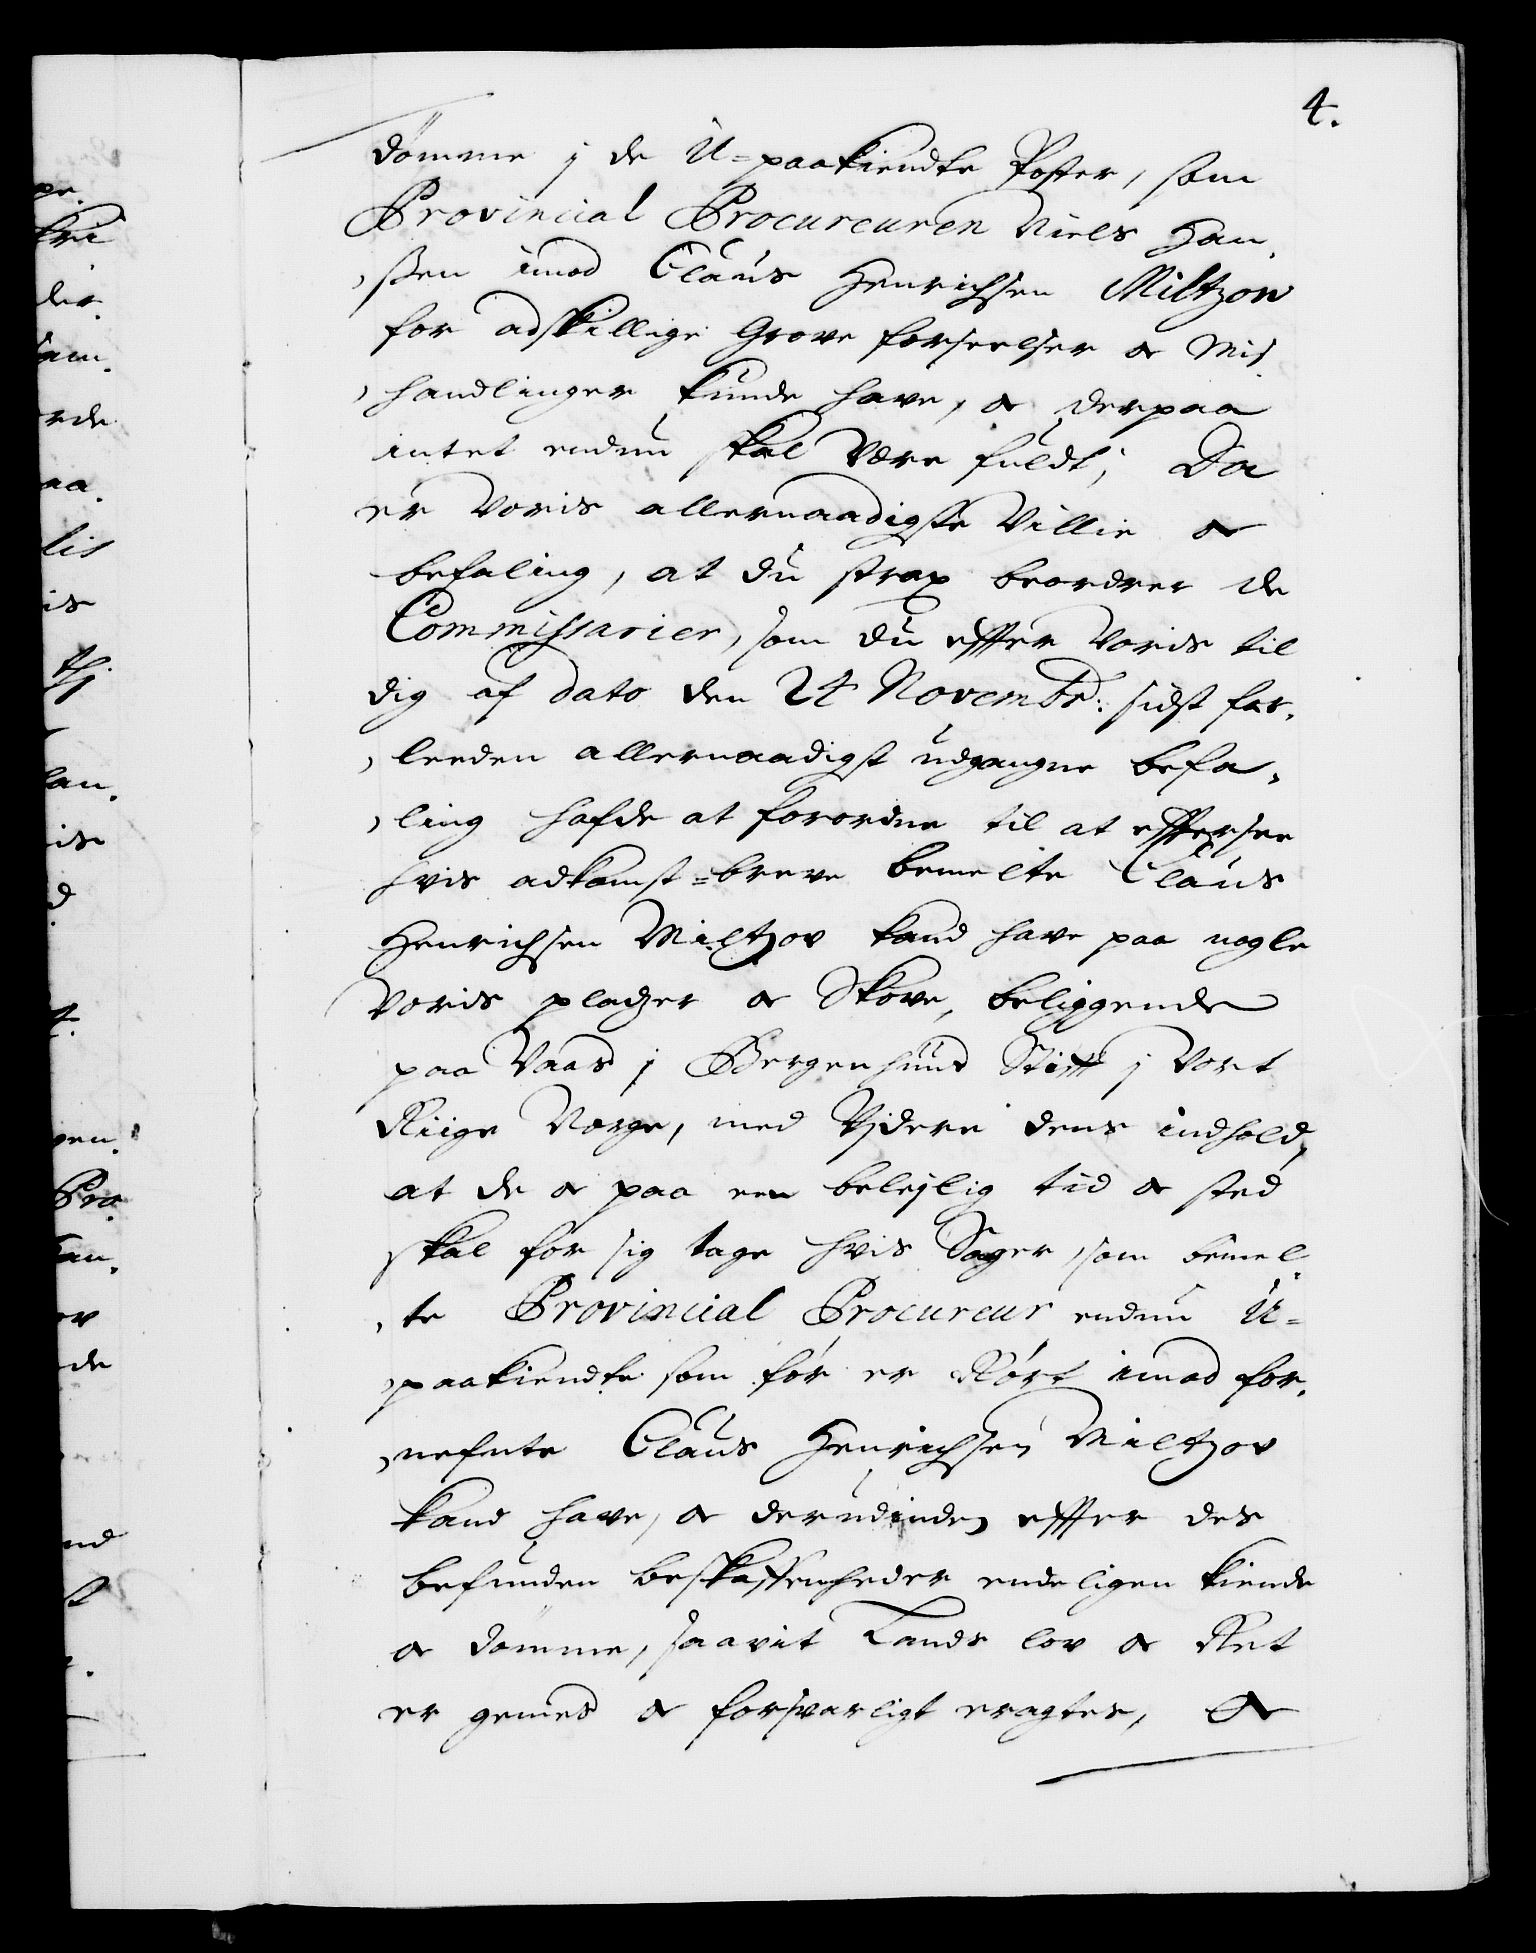 4.
dömme j de U-paakiendte Poster, som
Provincial Procureuren Niels Han-
ßen imod Claus Henrichsen Miltzow
for adskillige Grove forseelser og Mis-
handlinger kunde have, og derpaa
intet endnu skal være fuldt; Da
er voris allernaadigste Villie og
befaling, at du strax beordrer de
Commissarier, som du effter voris til
dig af dato den 24 Novembr: sidst for-
leeden allernaadigst udgangne befa-
ling hafde at forordne til at effttersee
hvis adkomst-breve bemelte Claus
Henrichsen Miltzov kand have paa nogle
voris pladzer og Skove, beliggende
paa Vaas j Bergenhuus Stifft j vort
Riige Norge, med Vjdere dens indhold,
at de og paa een belejlig tid og sted
skal for sig tage hvis Sager, som bemel-
te Provincial Procureur endnu U-
paakiendte som før er Rørt imod for-
nefnte Claus Henrichsen Miltzov
kand have, og derudinden effter des
befunden beskaffenheder endeligen kiende
og dömme, saavit Lands lov og Ret
er gemes og forsvarligt eragtes, Og